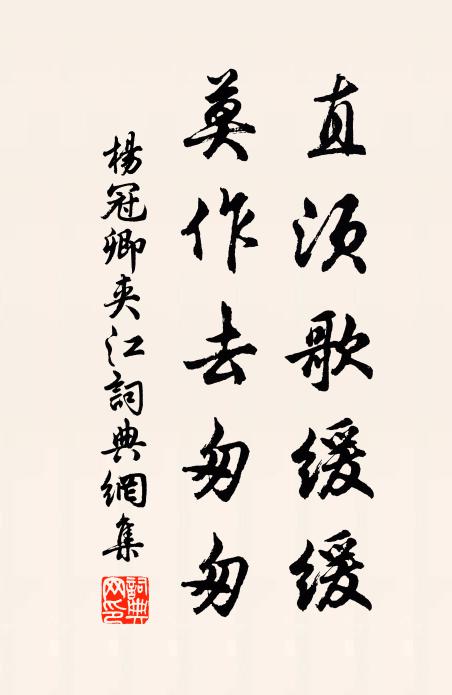 直須歌緩緩
莫作去匆匆
楊冠卿夾江詞典網集
詞典網印